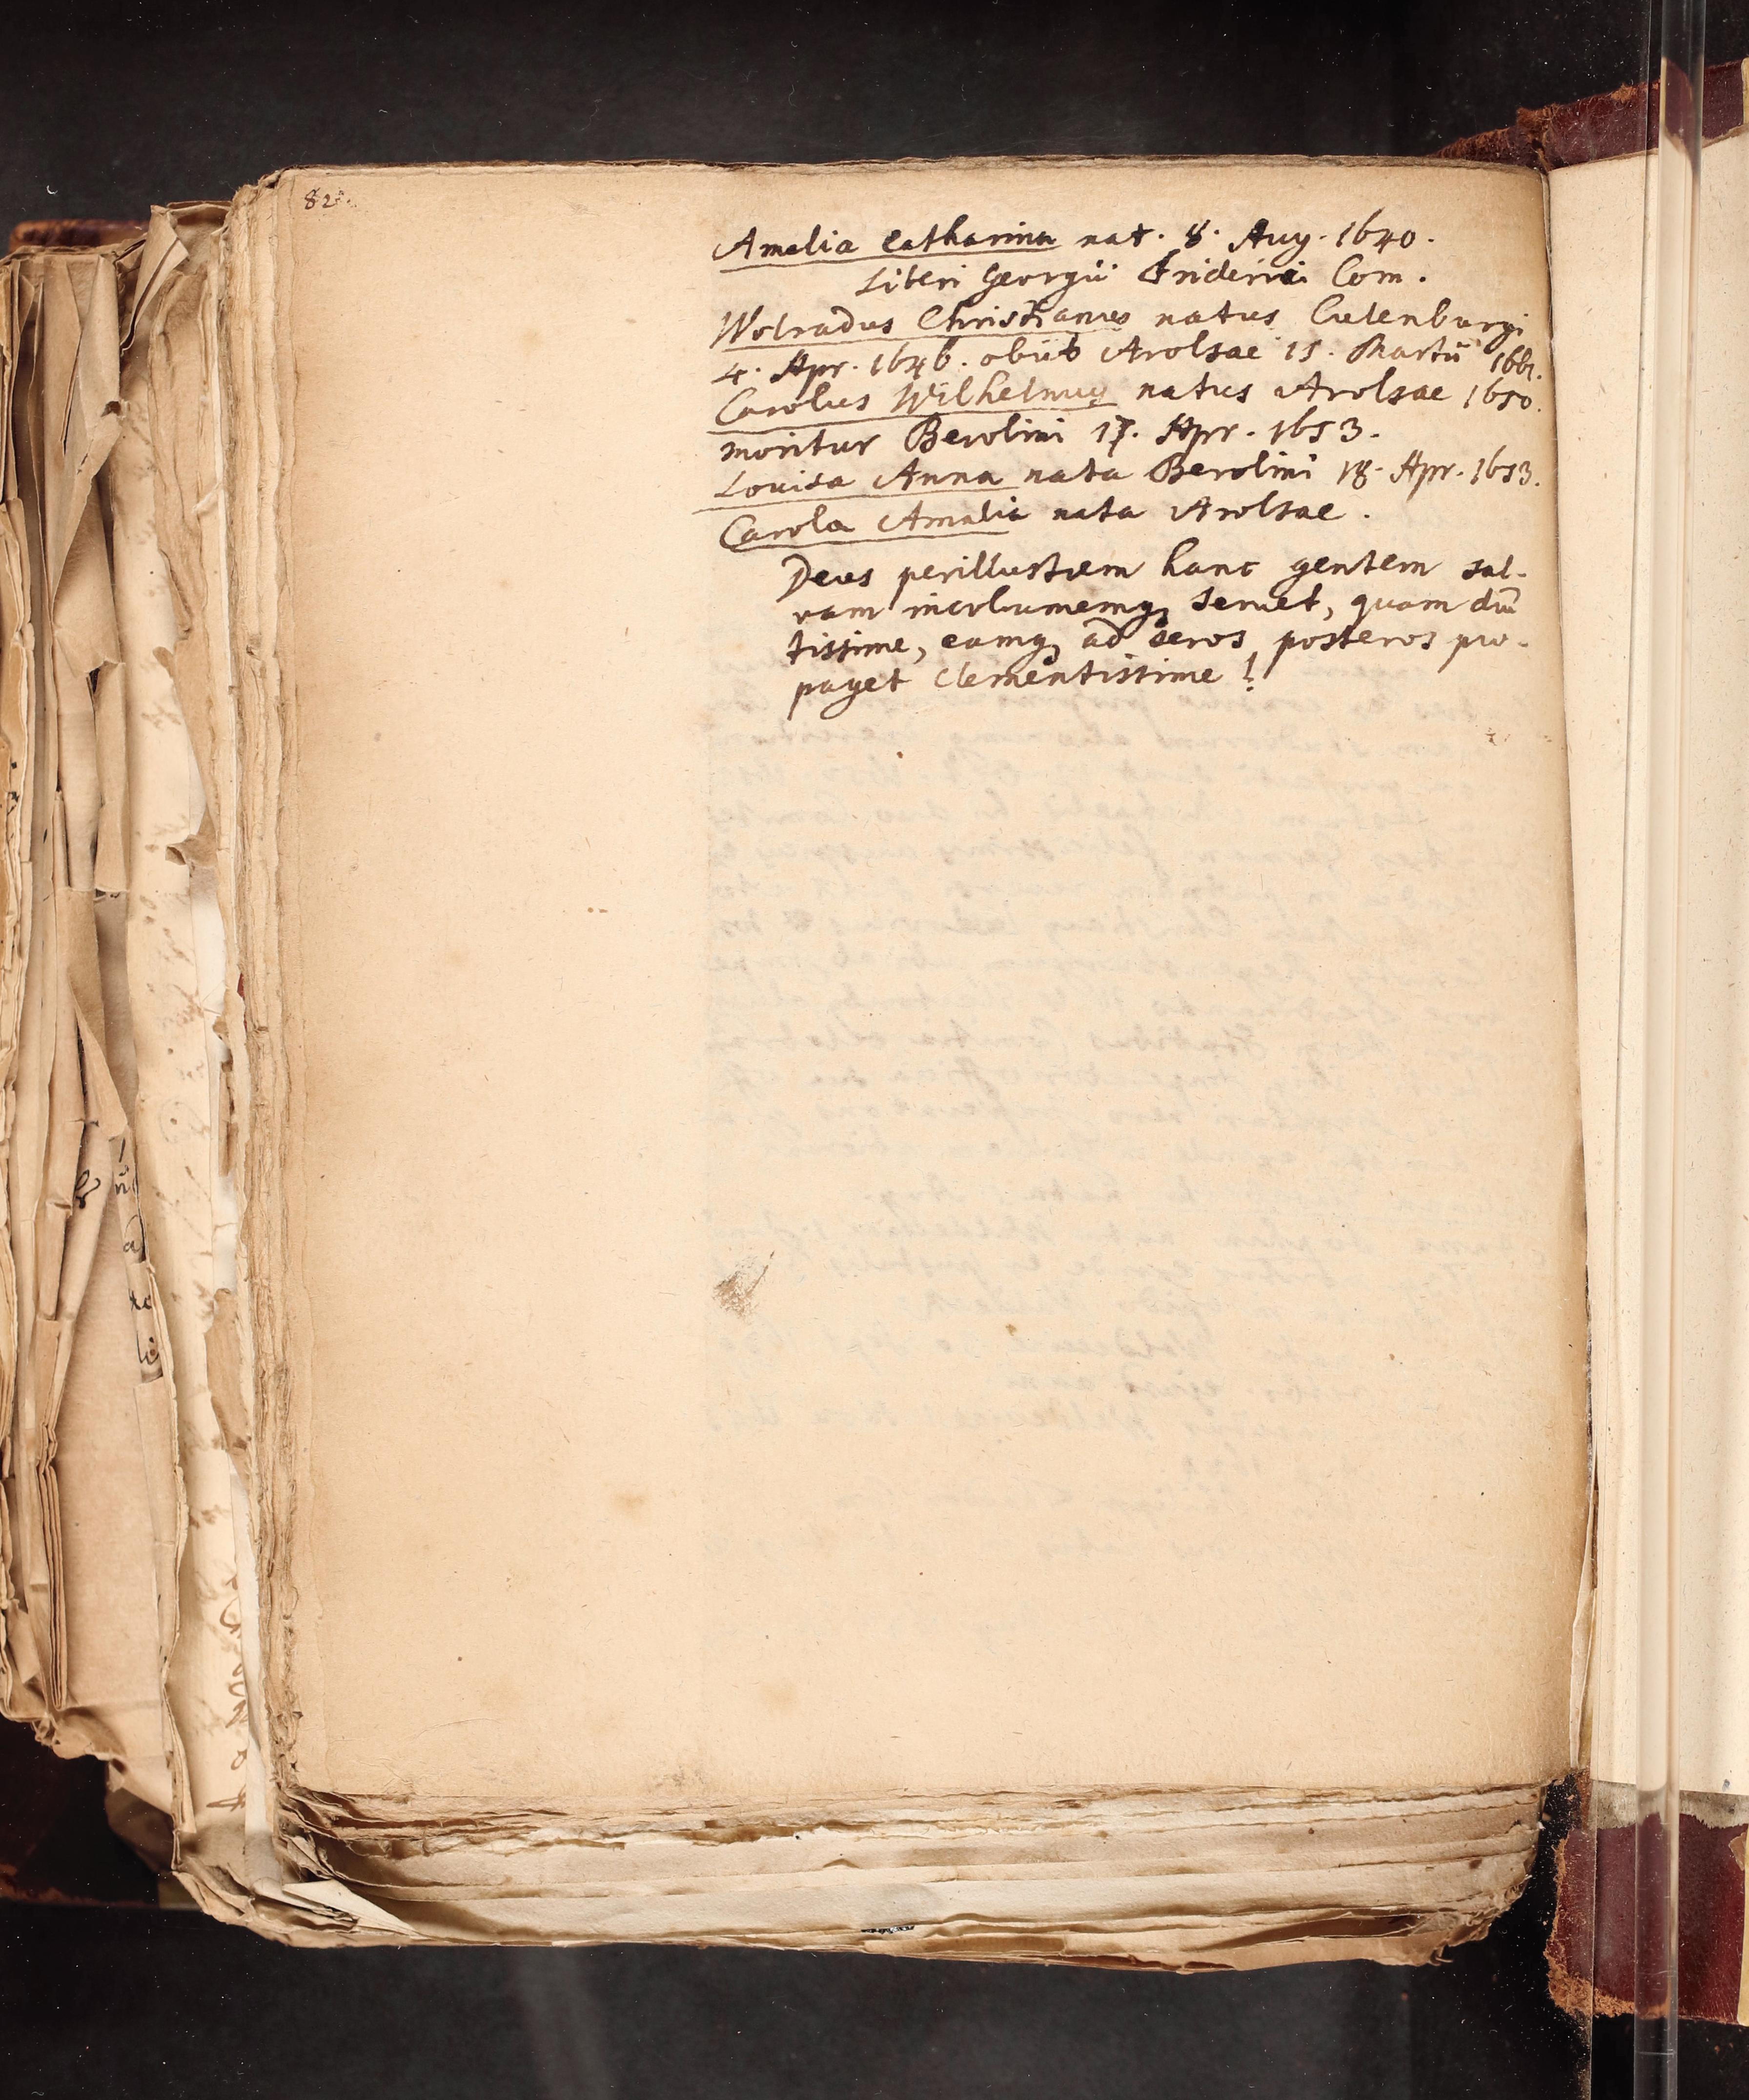 82.
Amalia Catharina nat. 8. Aug. 1640.
Liberi Georgii Friderici Com.
Wolradus Christianus natus Culenburgi
4. Apr. 1646. obiit Arolsae 15. Martii 1661.
Carolus Wilhelmus natus Arolsae 1650.
moritur Berolini 17. Apr. 1653.
Louisa Anna nata Berolini 18. Apr. 1653.
Carola Amalia nata Arolsae.
Deus perillustrem hanc gentem sal-
vam incolumemq; servet, quam diu
tissime, eamq; ad seros posteros pro-
paget clementissime!